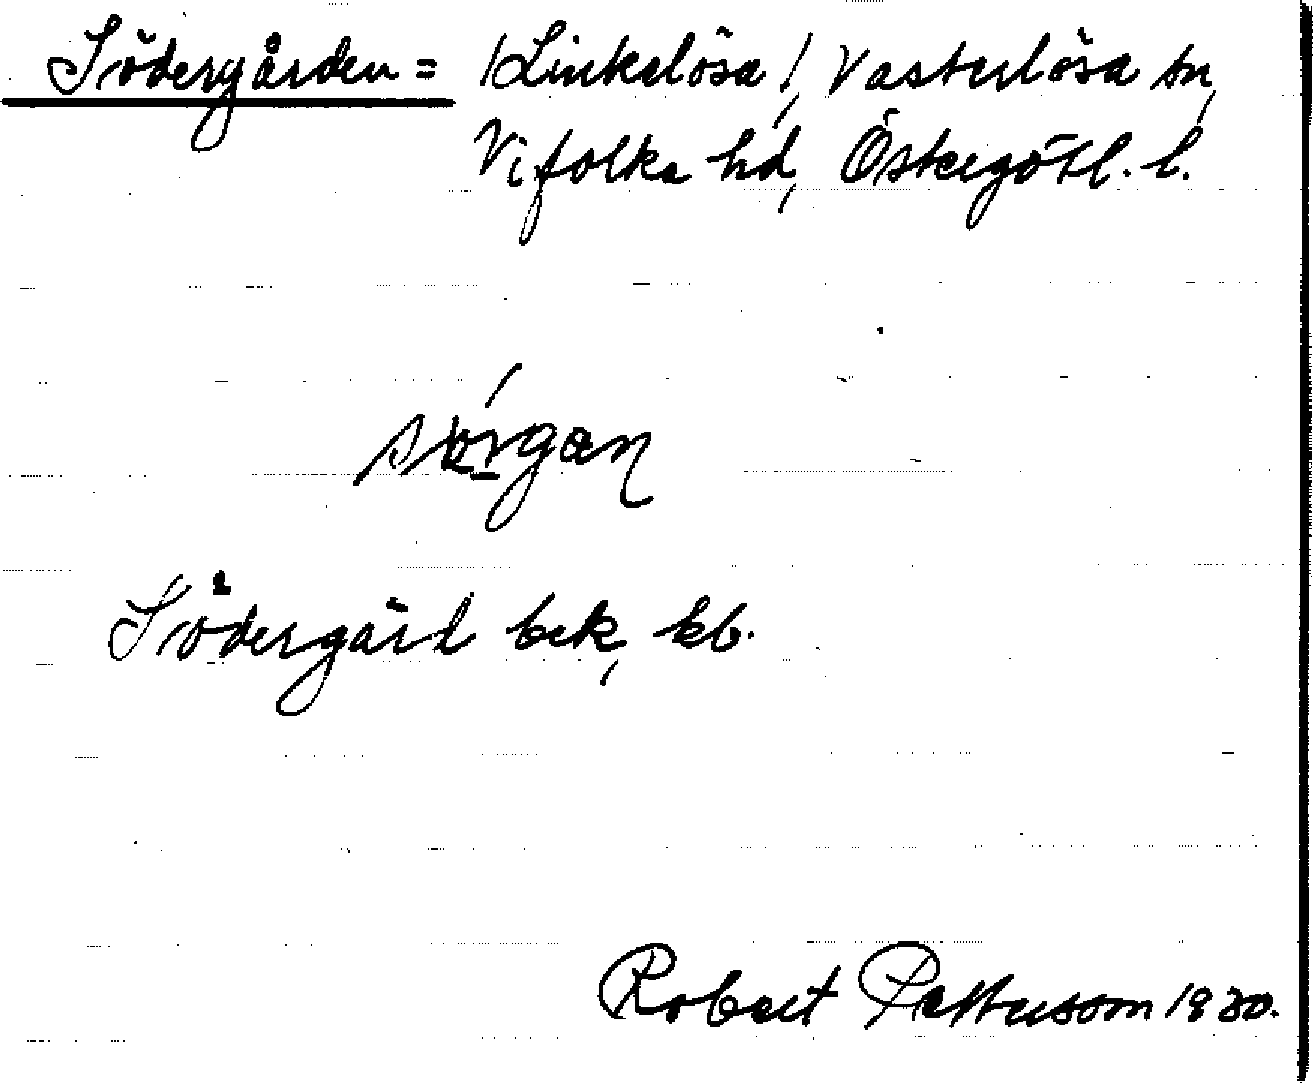 Södergården = /Linkelösa/, Västerlösa sn,
Vifolka hd, Östergötl. l.
Södergård bek, kb.
Robert Pettersson 1930.